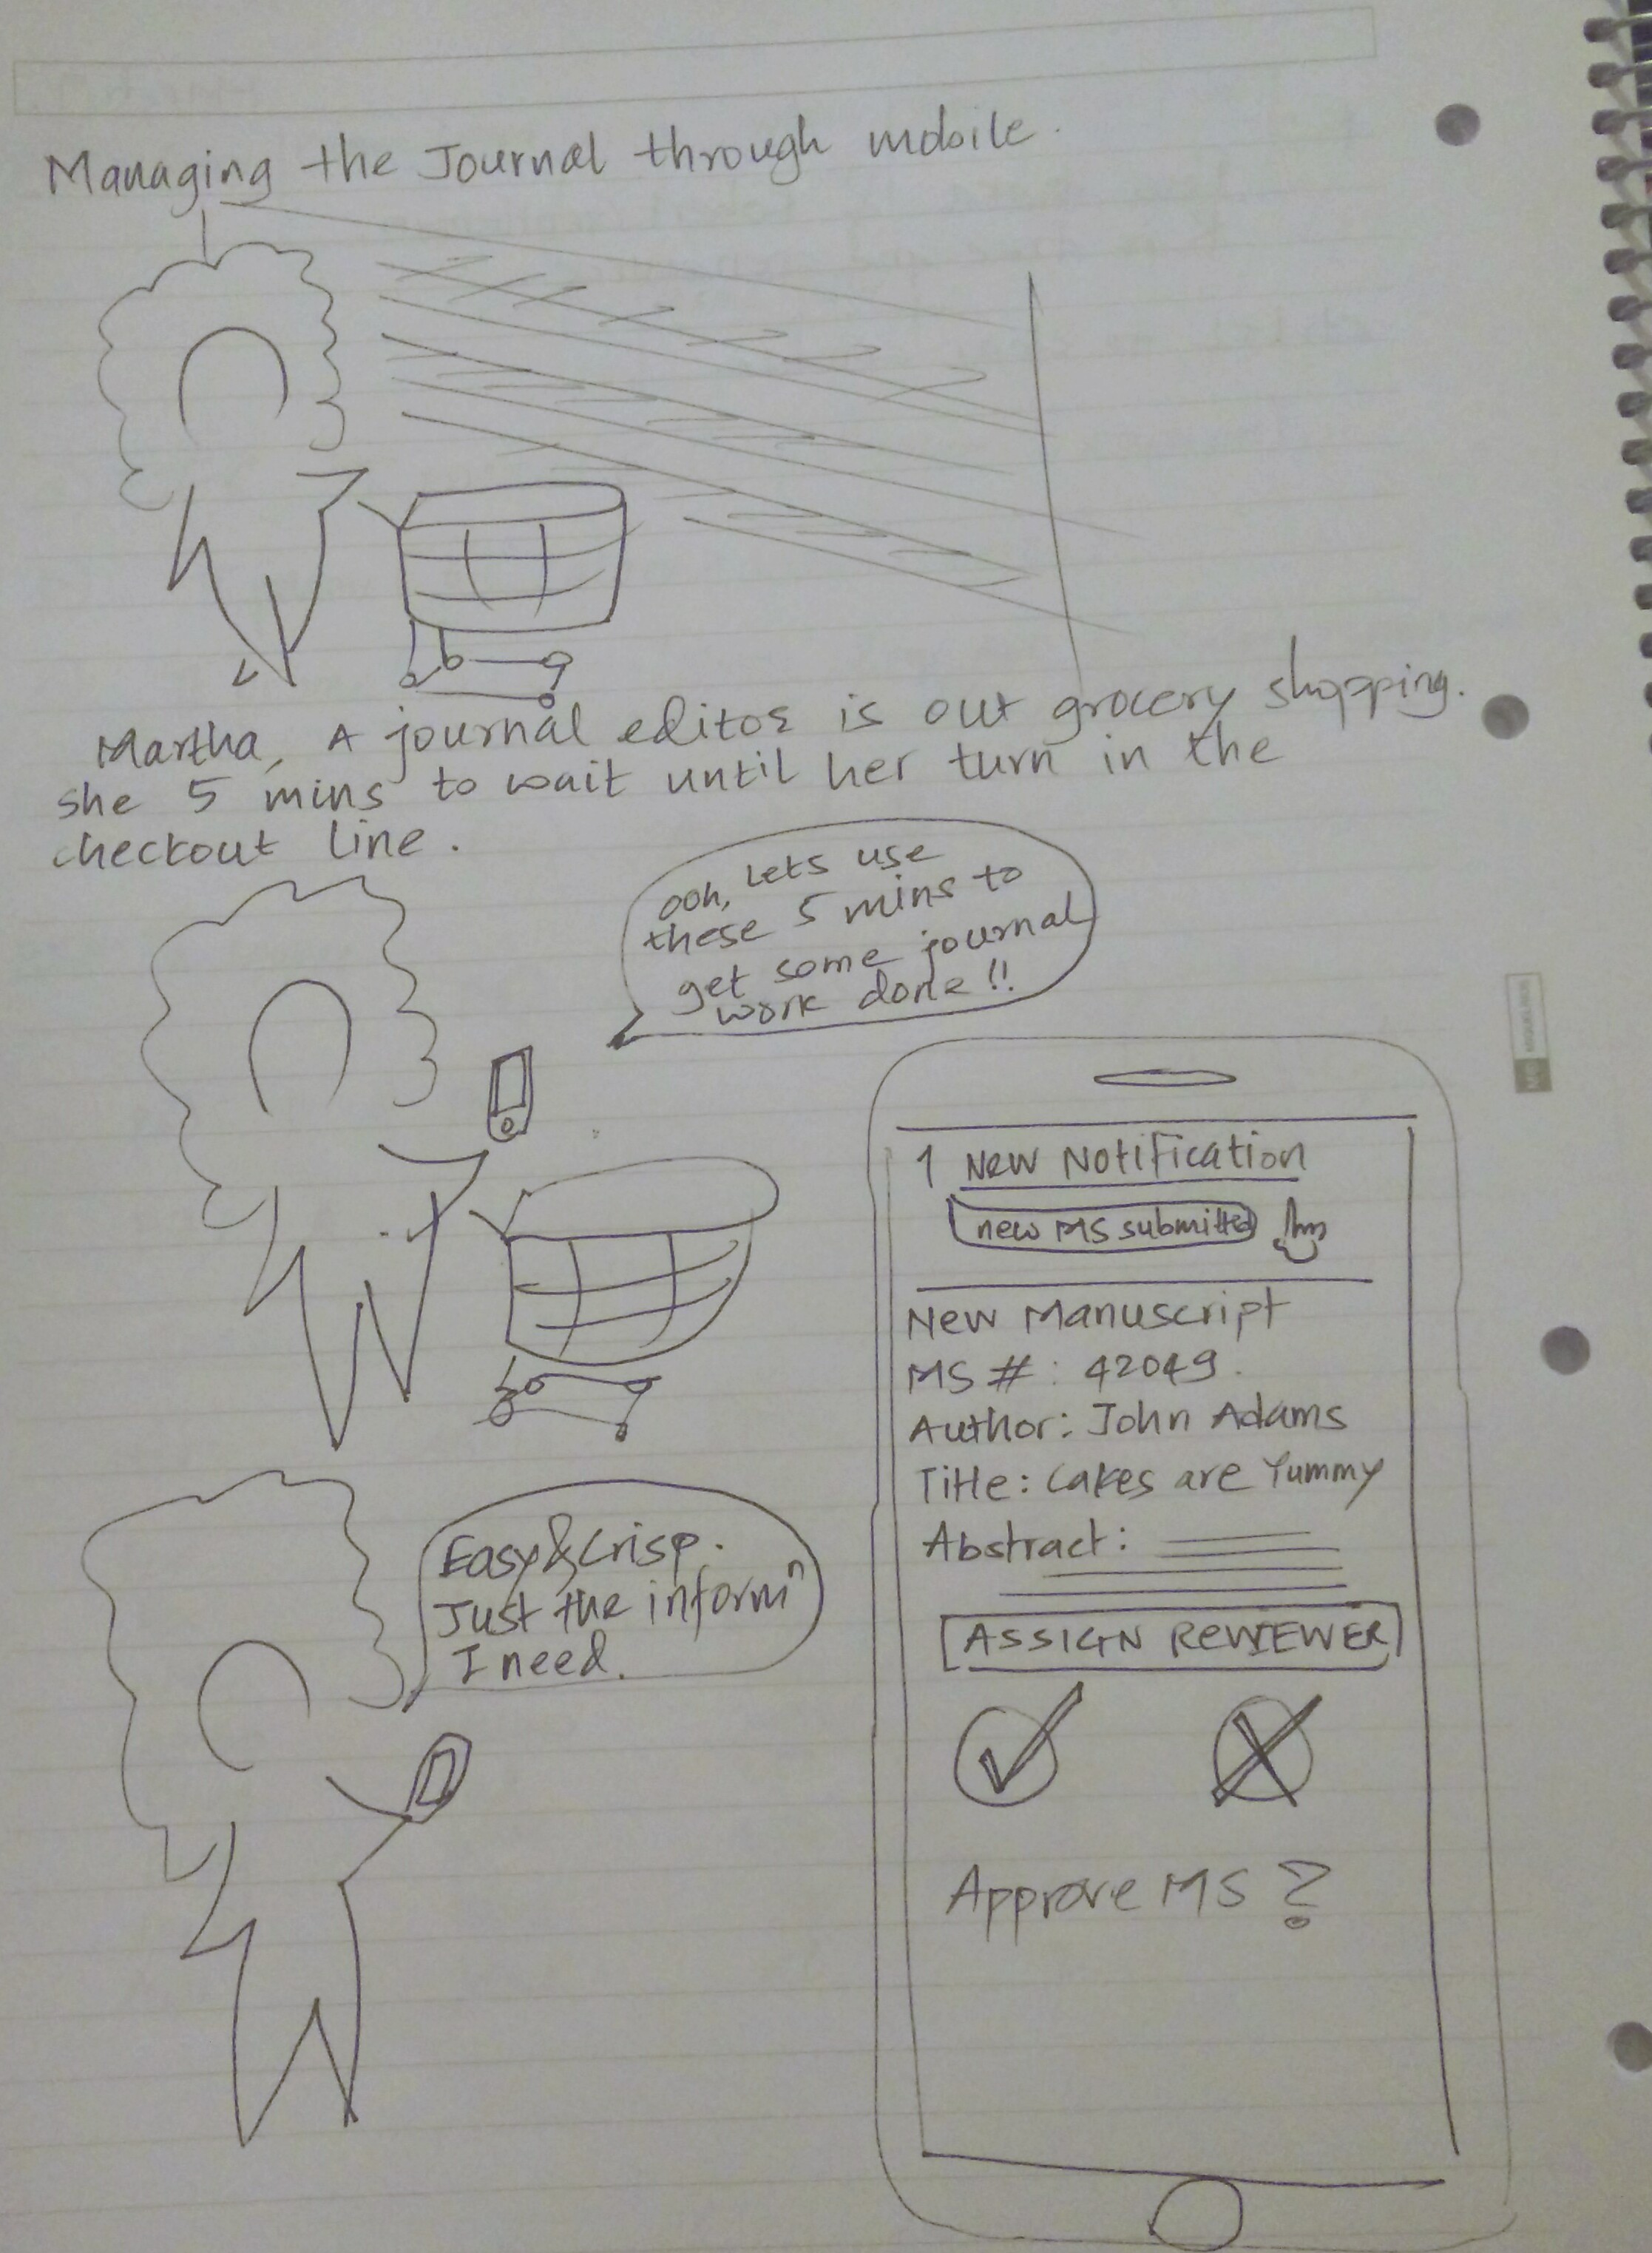 Managing the Journal through mobile.
Martha, A journal editor is out grocery shopping.
she 5 mins to wait until her turn in the
checkout line.
ooh, Lets use
these 5 mins to
get some journal
work done!!
1 New Notification
new MS submitted
New Manuscript
MS # : 42049.
Author: John Adams
Title: Cakes are Yummy
Abstract:
ASSIGN REVIEWER
Approve MS ?
Easy & Crisp.
Just the informⁿ
I need.